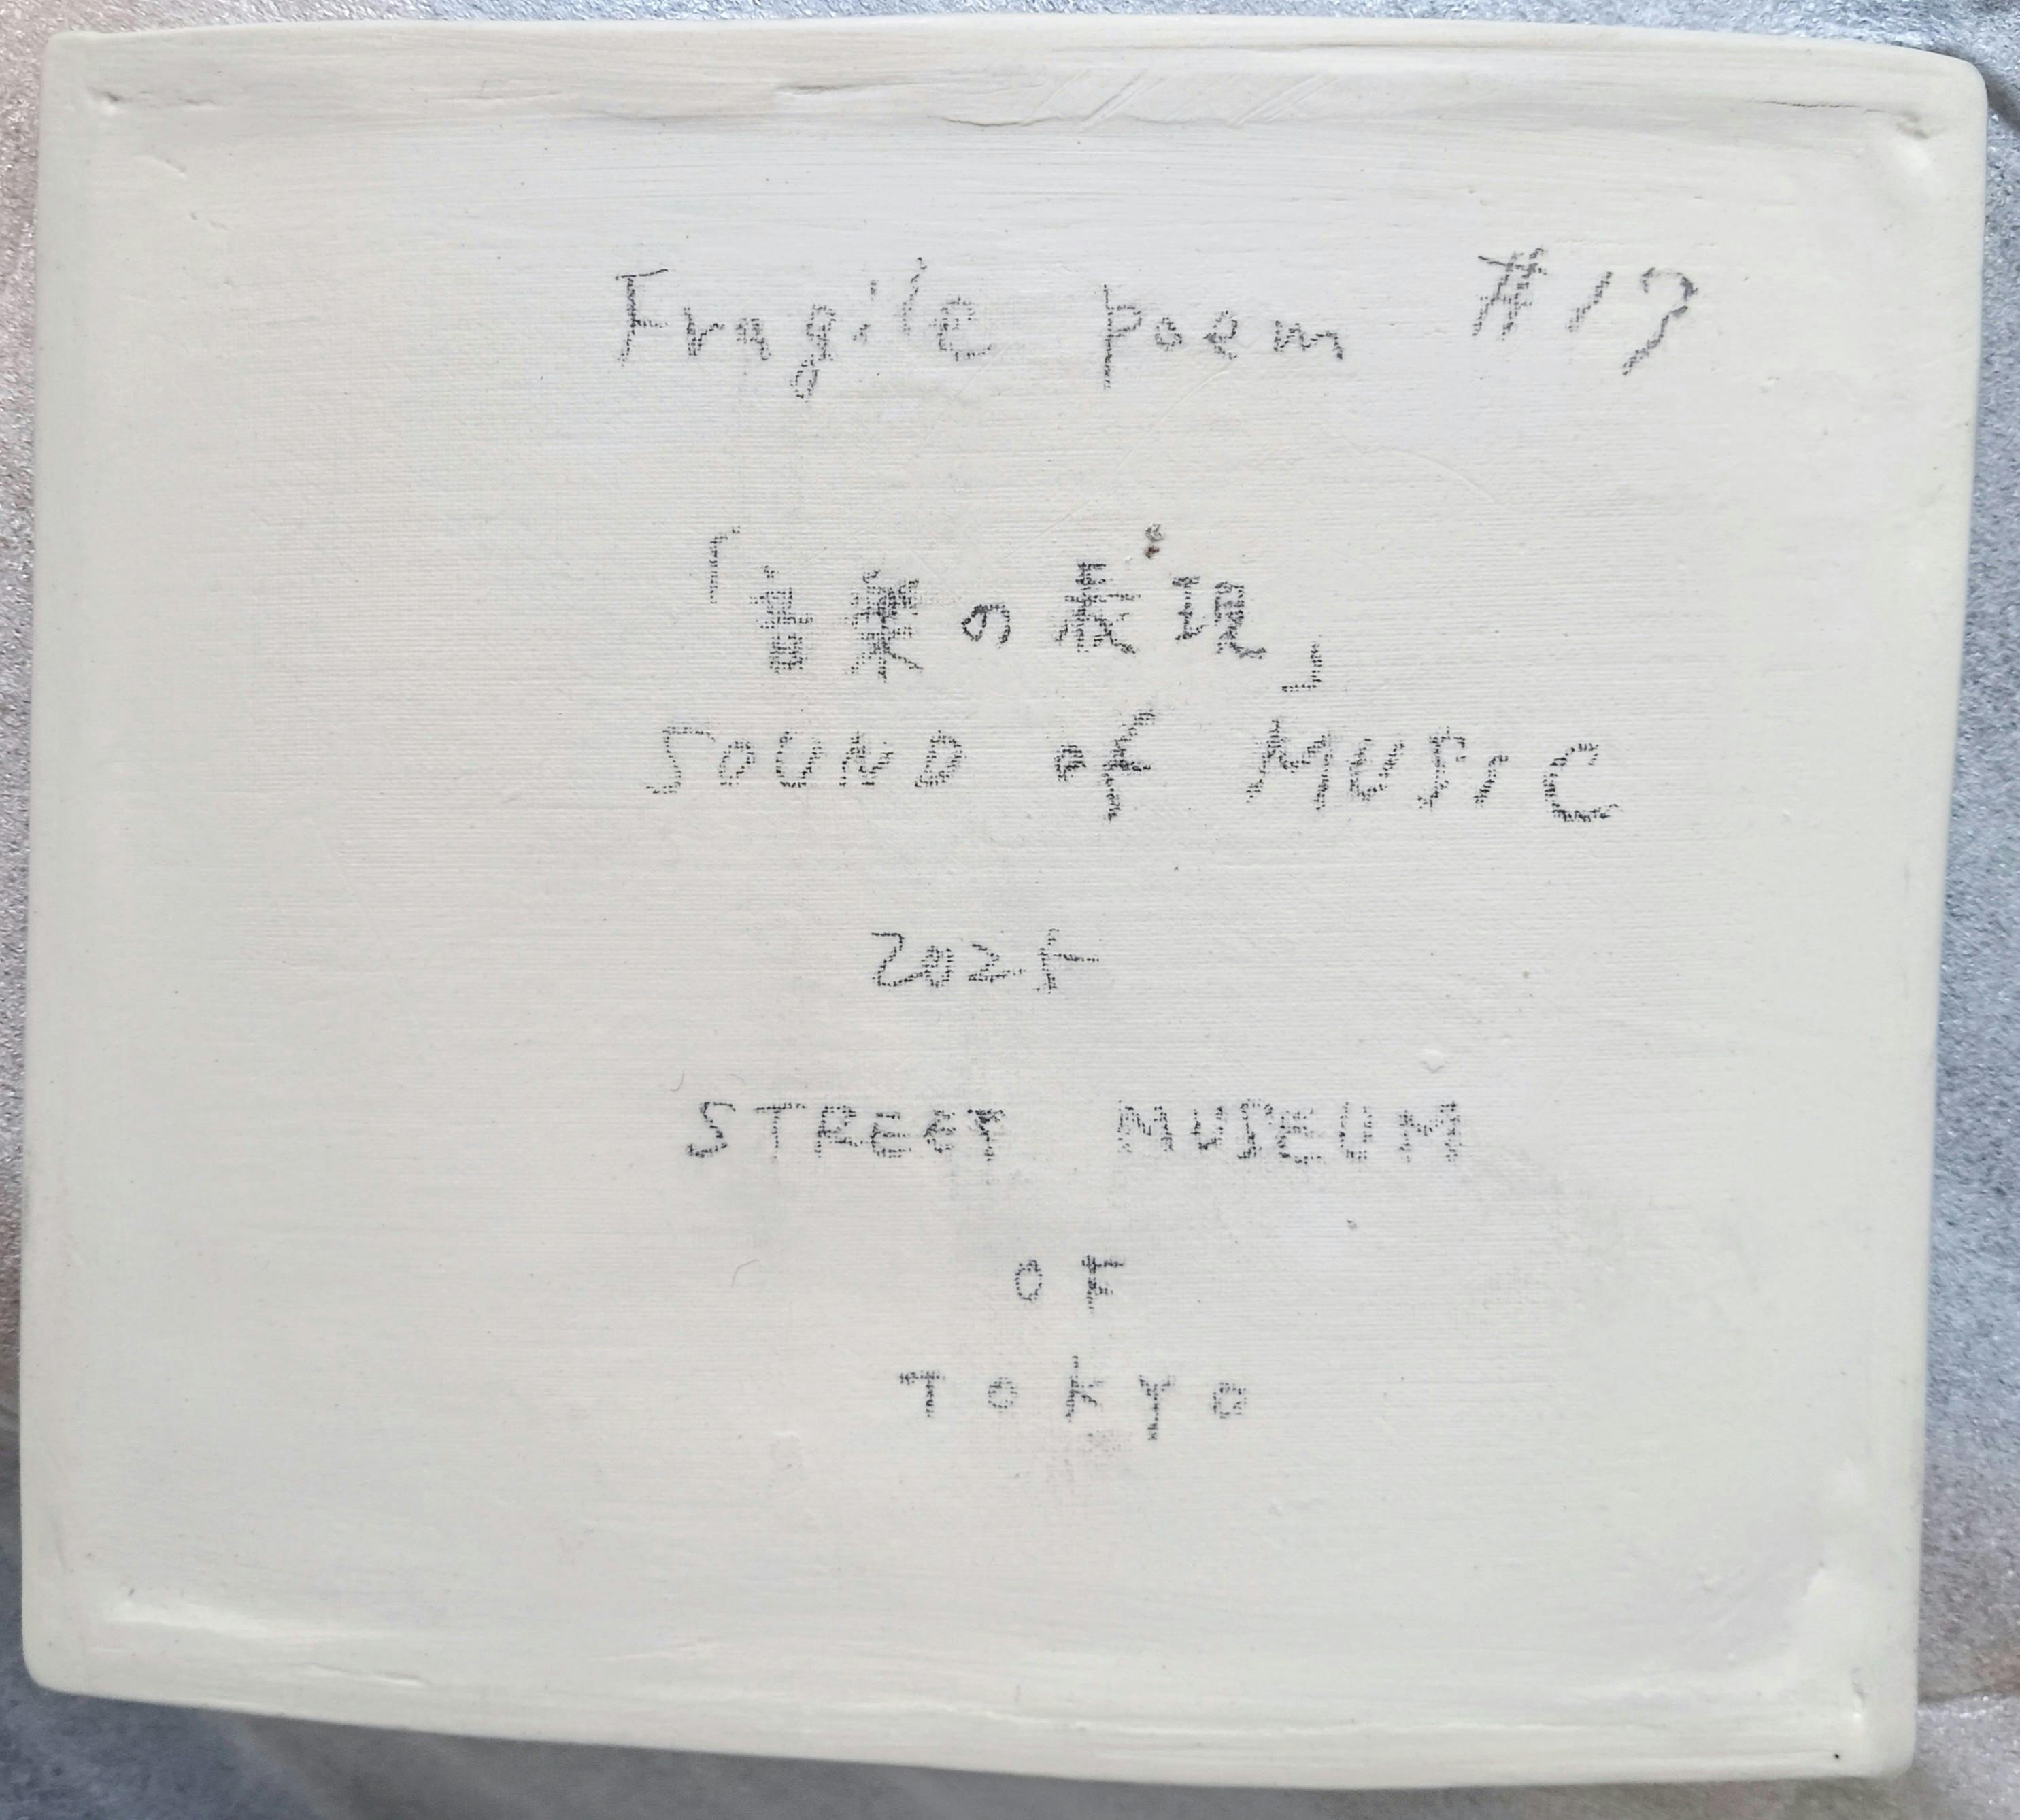 Fragile poem #17
「音楽の表現」
SOUND of MUSIC
2024
STREET MUSEUM
OF
TOKYO